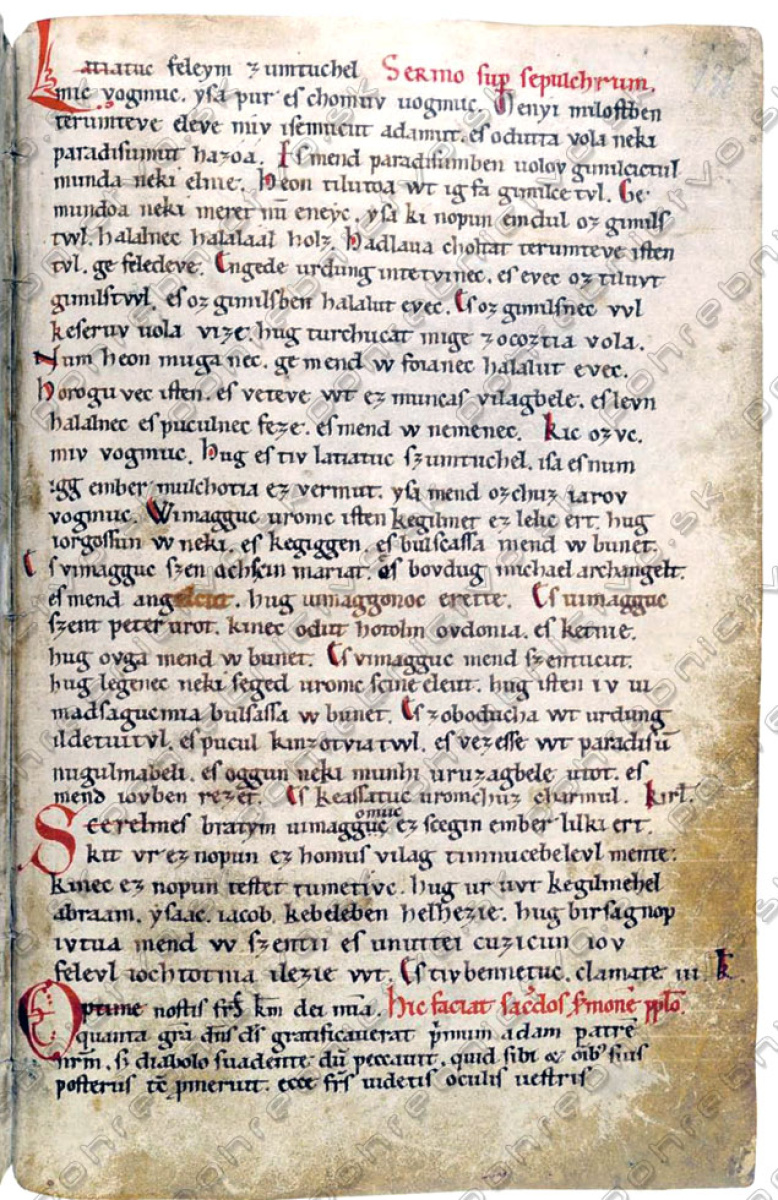 Latiatuc feleym zumtuchel Sermo sup sepulchrum.
mic vogmuc. ysa pur es chomuv uogmuc. Menyi milostben
terumteve eleve miv isemucut adamut. es odutta vola neki
paradisumut hazoa. Es mend paradisumben uolov gimilcictul
munda neki elnie. Heon tilutoa wt ig fa gimilce tvl. Ge
mundoa neki meret nū eneyc. ysa ki nopun emdul oz gimils
twl. halalnec halalaal holz. Hadlaua choltat terumteve isten
tvl. ge feledeve. Engede urdung intetvinec. es evec oz tiluvt
gimilstwl. es oz gimilsben halalut evec. Es oz gimilsnec vvl
keseruv uola vize. hug turchucat mige zocoztia vola.
Num heon muga nec. ge mend w foianec halalut evec.
Horoguvec isten. es veteve wt ez muncas vilagbele. es levn
halalnec es puculnec feze. es mend w nemenec. Kic ozvc.
miv vogmuc. Hug es tiv latiatuc szumtuchel. isa es num
igg ember mulchotia ez vermut. ysa mend ozchuz iarov
vogmuc. Wimagguc uromc isten kegilmet ez lelic ert. hug
iorgossun w neki. es kegiggen. es bulscassa mend w bunet.
Es vimagguc szen achscin mariat. es bovdug michael archangelt.
es mend angelcut. hug uimaggonoc erette. Es uimagguc
szent peter urot. kinec odut hotolm ovdonia. es ketnie.
hug ovga mend w bunet. Es vimagguc mend szentucut.
hug legenec neki seged uromc scine eleut. hug isten iv ui
madsaguc mia bulsassa w bunet. Es zoboducha wt urdung
ildetuitvl. es pucul kinzotviatwl. es vezesse wt paradisū
nugulmabeli. es oggun neki munhi uruzagbele utot. es
mend iovben rezet. Es keassatuc uromchuz charmul. kirl.
Scerelmes bratym uimagguc omuc ez scegin ember lilki ert.
kit vr ez nopun ez homus vilag timnucebelevl mente.
kinec ez nopun testet tumetivc. hug ur uvt kegilmehel
abraam. ysaac. iacob. kebeleben helhezie. hug birsagnop
ivtua mend w szentii es unuttei cuzicun iov
felevl iochtotnia ilezie wt. Es tivbennetuc. clamate iii. k.
Optime nostis frs km dei mia. Hic faciat sacdos smone pplo.
quanta gra dns ds gratificauerat pmum adam patre
nrm. s diabolo suadente dū peccauit. quid sibi & oibus suis
posteris te pmeruit. ecce frs uidetis oculis uestris